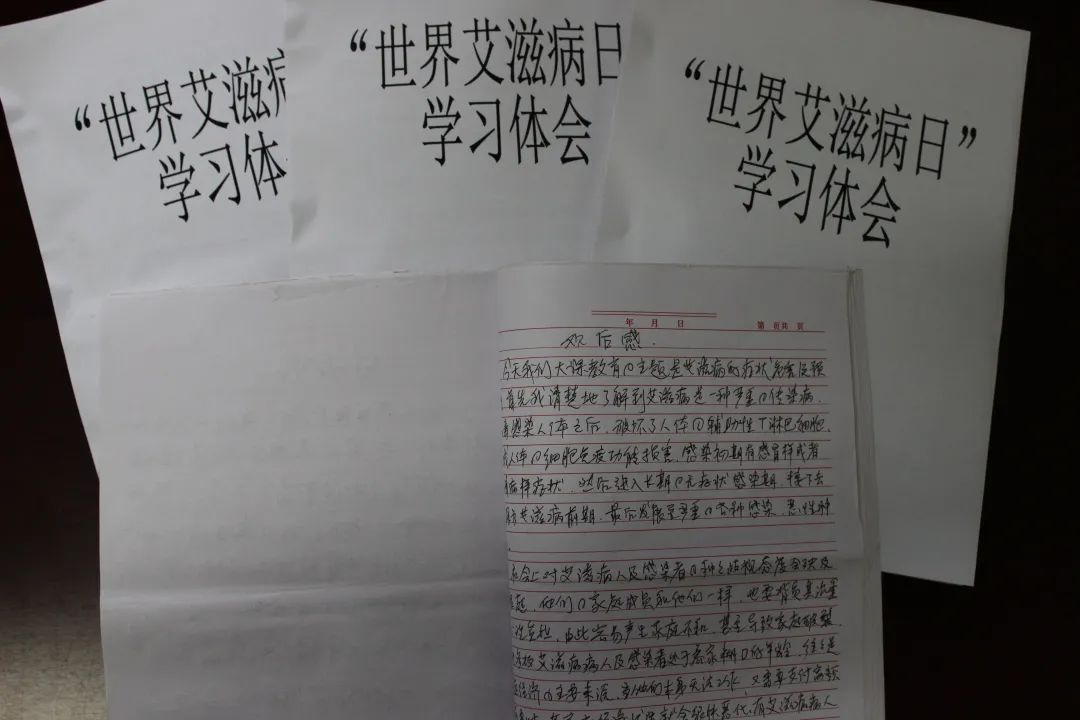 “世界艾滋病
学习体
“世界艾滋病日
学习体会
“世界艾滋病日”
学习体会
年 月 日
第 页共 页
观后感.
今天我们大课教育的主题是艾滋病的症状危害及预
首先我清楚地了解到艾滋病是一种严重的传染病,
感染人体之后,破坏了人体的辅助性T淋巴细胞,
人体的细胞免疫功能损害,感染初期有感冒样或者
病样症状,然后进入长期的无症状感染期,接下去
艾滋病前期,最后发展至严重的各种感染,恶性肿
社会上对艾滋病人及感染者的种种歧视态度会殃及
他们的家庭成员和他们一样,也要背负其沉重
由此容易产生家庭不和,甚至导致家庭破裂.
艾滋病病人及感染者处于 的年龄,往往是
经济的主要来源,当他们本身无法工作,又需要支付高额
有艾滋病病人